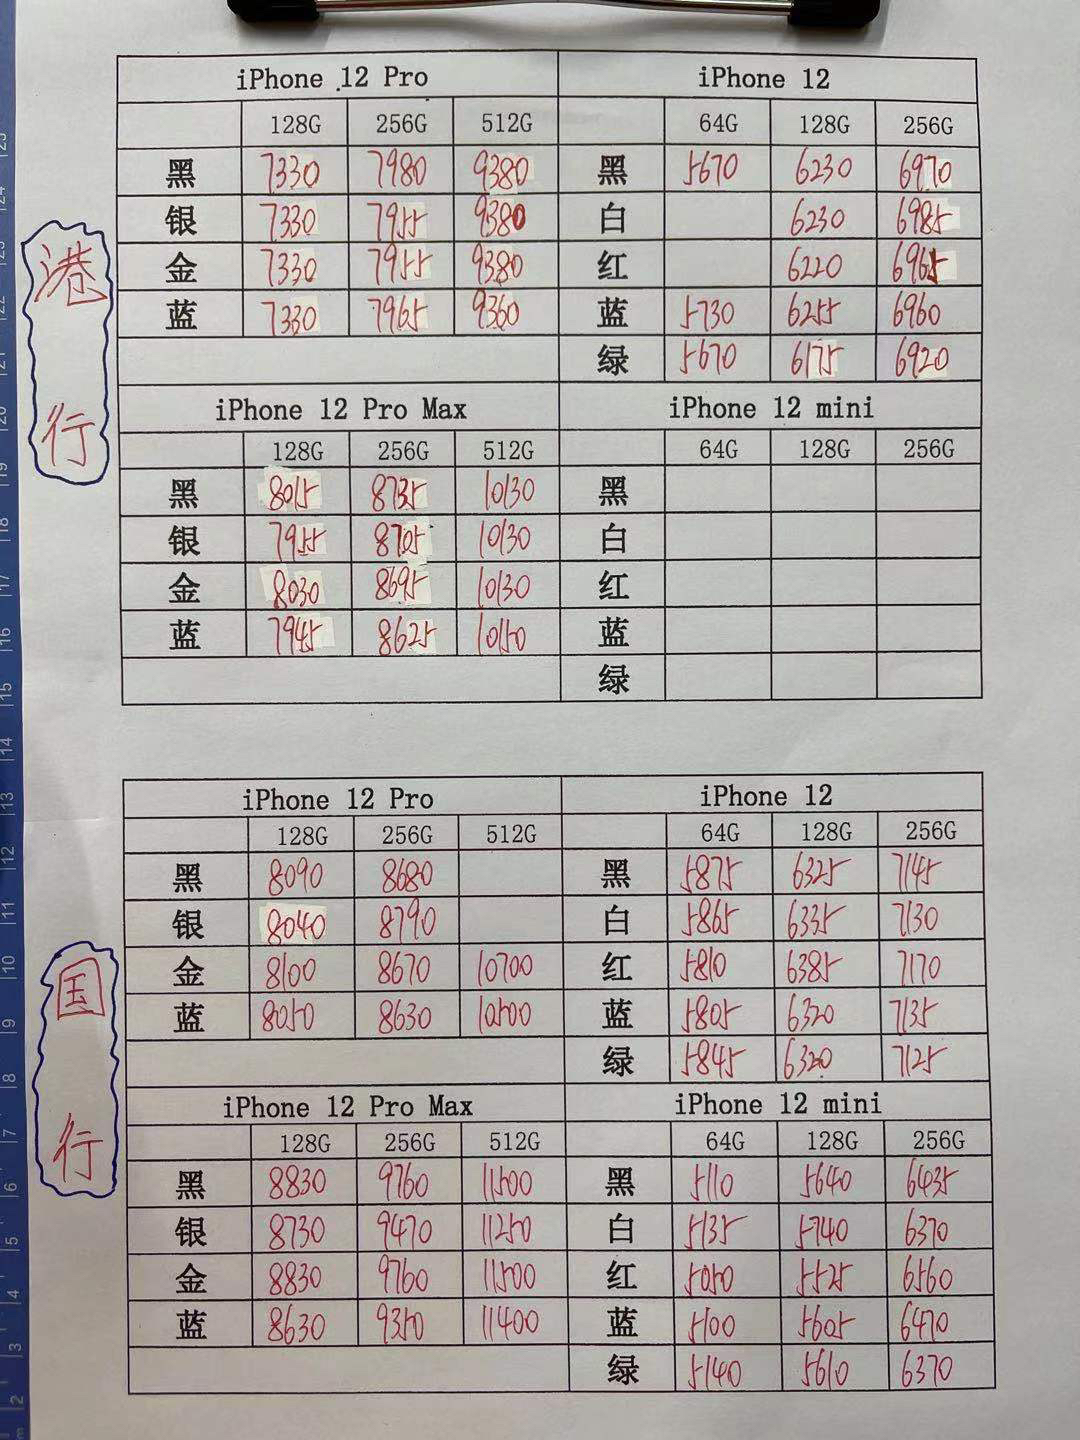 iPhone 12 Pro iPhone 12
128G 256G 512G 64G 128G 256G
黑 7330 7980 9380 黑 5670 6230 6970
银 7330 7955 9380 白 6230 6985
金 7330 7955 9380 红 6220 6965
蓝 7330 7965 9360 蓝 5730 6255 6960
绿 5670 6175 6920
港行
iPhone 12 Pro Max iPhone 12 mini
128G 256G 512G 64G 128G 256G
黑 8015 8735 10130 黑
银 7955 8705 10130 白
金 8030 8695 10130 红
蓝 7945 8625 10150 蓝
绿
iPhone 12 Pro iPhone 12
128G 256G 512G 64G 128G 256G
黑 8090 8680 黑 5875 6325 7145
银 8040 8790 白 5865 6335 7130
金 8100 8670 10700 红 5810 6385 7170
蓝 8050 8630 10500 蓝 5805 6320 7135
绿 5845 6320 7125
国行
iPhone 12 Pro Max iPhone 12 mini
128G 256G 512G 64G 128G 256G
黑 8830 9760 11500 黑 5110 5640 6435
银 8730 9470 11250 白 5135 5740 6370
金 8830 9760 11500 红 5050 5525 6560
蓝 8630 9350 11400 蓝 5100 5605 6470
绿 5140 5610 6370